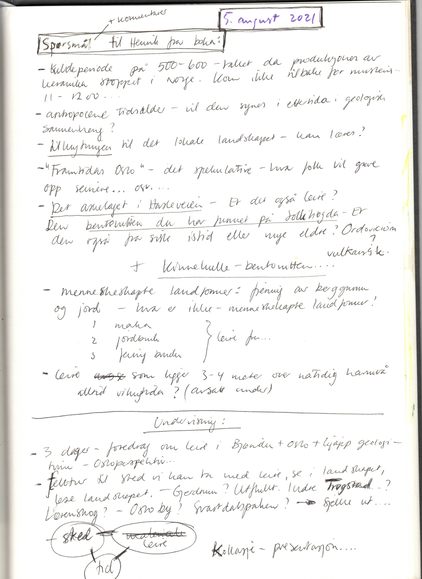 + kommentarer
5. august 2021
Spørsmål til Henrik fra boka:
- Kuldeperiode på 500-600-tallet da produksjonen av
keramikk stoppet i Norge. Kom ikke tilbake før
11-1200...
- antropocene tidsalder - vil den synes i ettertida i geologisk
sammenheng?
- tilknytningen til det lokale landskapet - kan læres?
- "Framtidas Oslo" - det spekulative - hva folk vil grave
opp seinere... osv....
- Det laget i - Er det også leire?
Den bentonitten du har funnet på - Er
den også fra siste istid eller mye eldre? Ordovicium
?
vulkansk.
+ Kinnekulle-bentonitten....
- menneskeskapte landformer: flytting av berggrunn
og jord - hva er ikke-menneskeskapte landformer!
1
2 jordbruk
3
leire fra...
- leire som ligger 3-4 meter over nåtidig havnivå
alltid ? (avsatt under)
Undervisning:
- 3 dager - foredrag om leire i + Oslo + geologi-
- Osloperspektiv...
- feltur til sted vi kan ta med leire, se i landskapet,
lese landskapet. - Gjerdrum? Utflukt. Indre Trøgstad..?
Lørenskog? - Oslo by? Svartdalsparken? →
- sted
materiale
leire
tid
Kollasje - presentasjon....